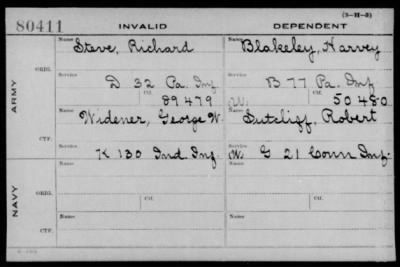 (3-11-3)
80411 INVALID DEPENDENT
Name Steve, Richard Name Blakeley, Harvey
ARMY
ORIG.
Service D 32 Pa. Inf Service B 77 Pa. Inf
Ctf. 89479 (W) Ctf. 50480
Name Widener, George W. Name Sutcliff, Robert
CTF.
Service K 130 Ind. Inf. Service (W) G 21 Conn Inf.
NAVY
Name Name
ORIG.
Service Service
Ctf. Ctf.
Name Name
CTF.
Service Service